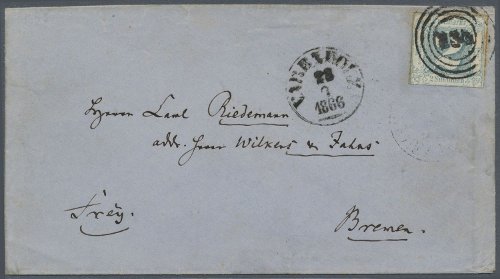 VARENHOLZ
28
7
1866
Herrn Carl Riedemann
addr. Herrn Wilkens & Fahns
frey.
Bremen.